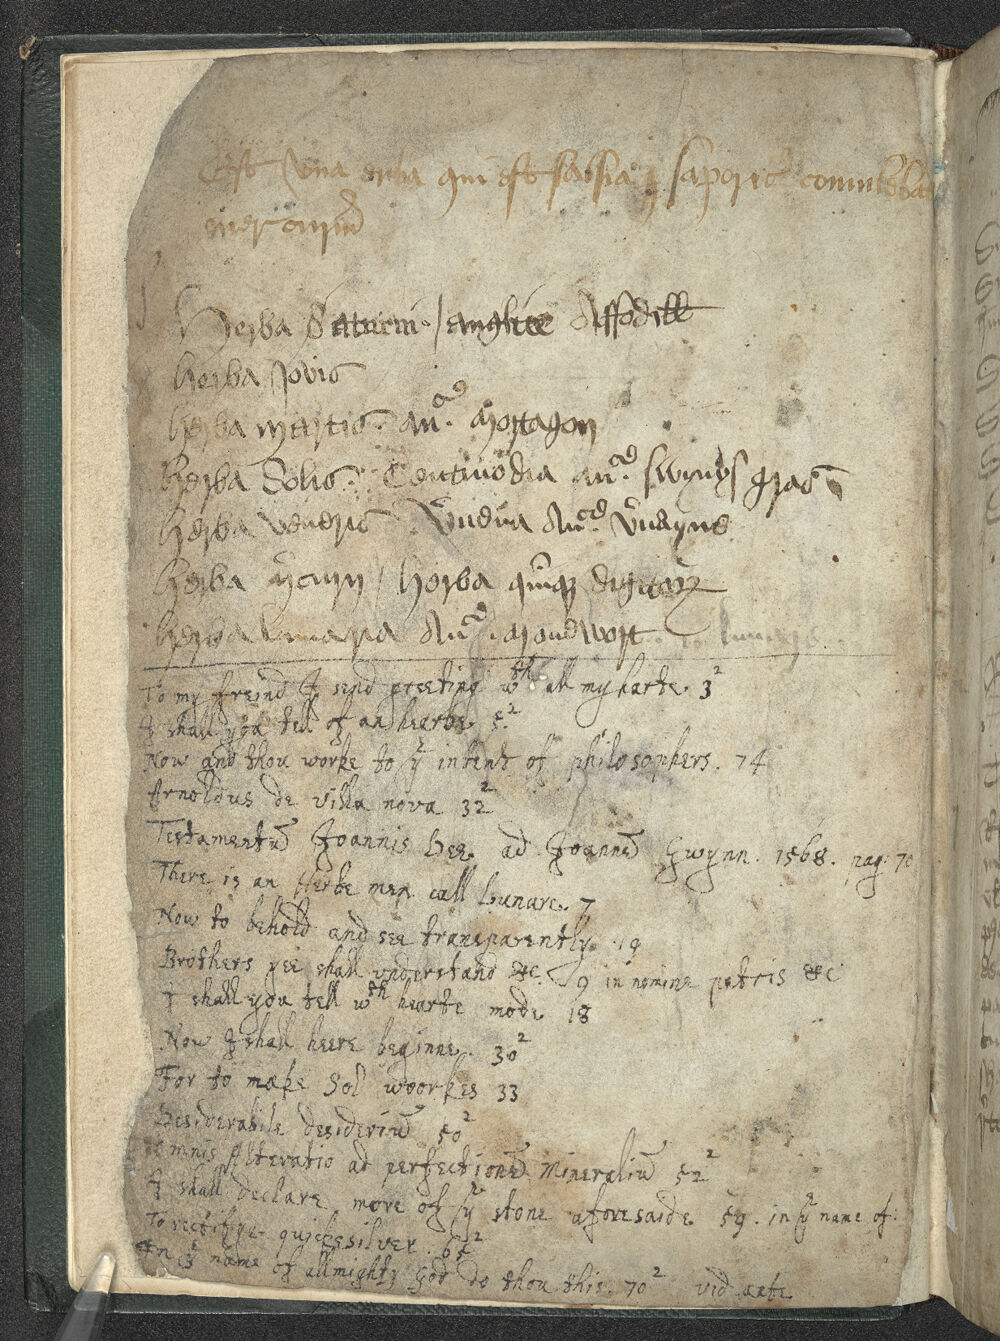 Est una erba qui est salsia saporis
mercurium
Herba Saturni / anglice Affodill
herba Jovis
herba martis. an. mortagon
herba Solis. Centinodia an. swynys gras
herba veneris
herba / horba quinq digitorum
herba lunaria An. Monewort
To my freind I send greeting wth all my harte. 3²
I shall you tell of an hearbe 5²
Now and thou worke to yᵉ intent of philosophers. 74
Arnoldus de villa nova 32²
Testamentū Joannis Dee ad Joannē Gwynn. 1568. pag: 70
There is an Herbe men call Lunare. 7
Now to behold and see transparently. 19
Brothers yee shall vnderstand &c. 9 in nomine patris &c
I shall you tell wth hearte mode 18
Now I shall heere beginne. 30²
For to make Sol woorkes 33
Desiderabile desideriū 50²
Omnis Alteratio ad perfectionē Mineraliū 52²
I shall declare more of yᵉ stone aforesaide 59. in yᵉ name of:
To rectifye quickesilver. 65²
In yᵉ name of allmighty God do thou this. 70² vid